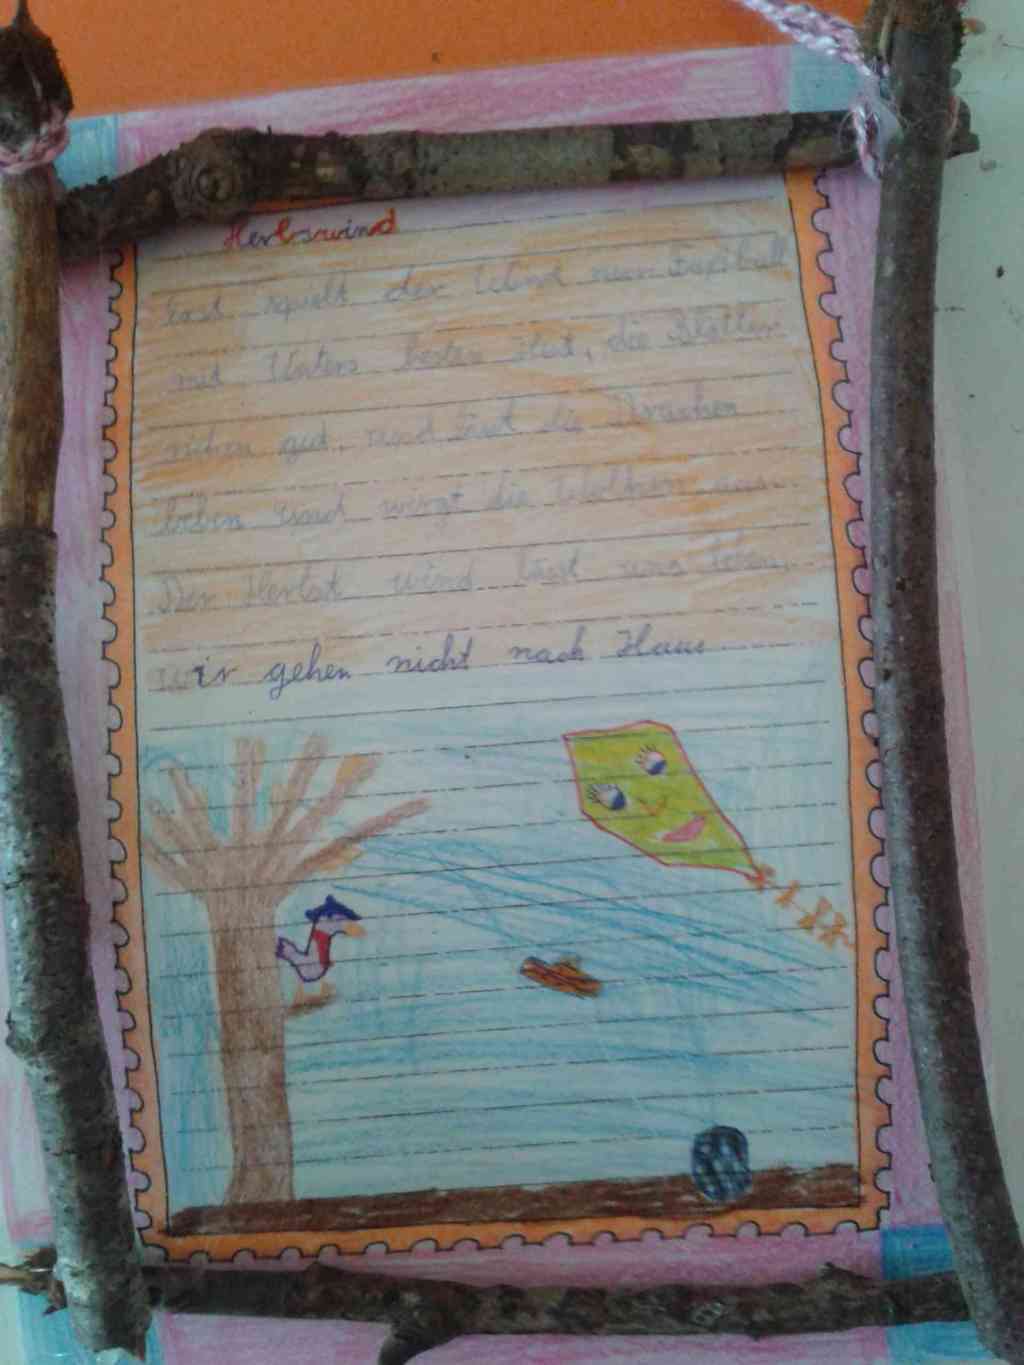 Herbswind
spielt der Wind nun Fussball
mit Vaters besten Hut, die Blätter
gut. und lässt die Drachen
beben und wirgt die Wolken aus.
Der Herbst wind lässt uns toben,
wir gehen nicht nach Haus